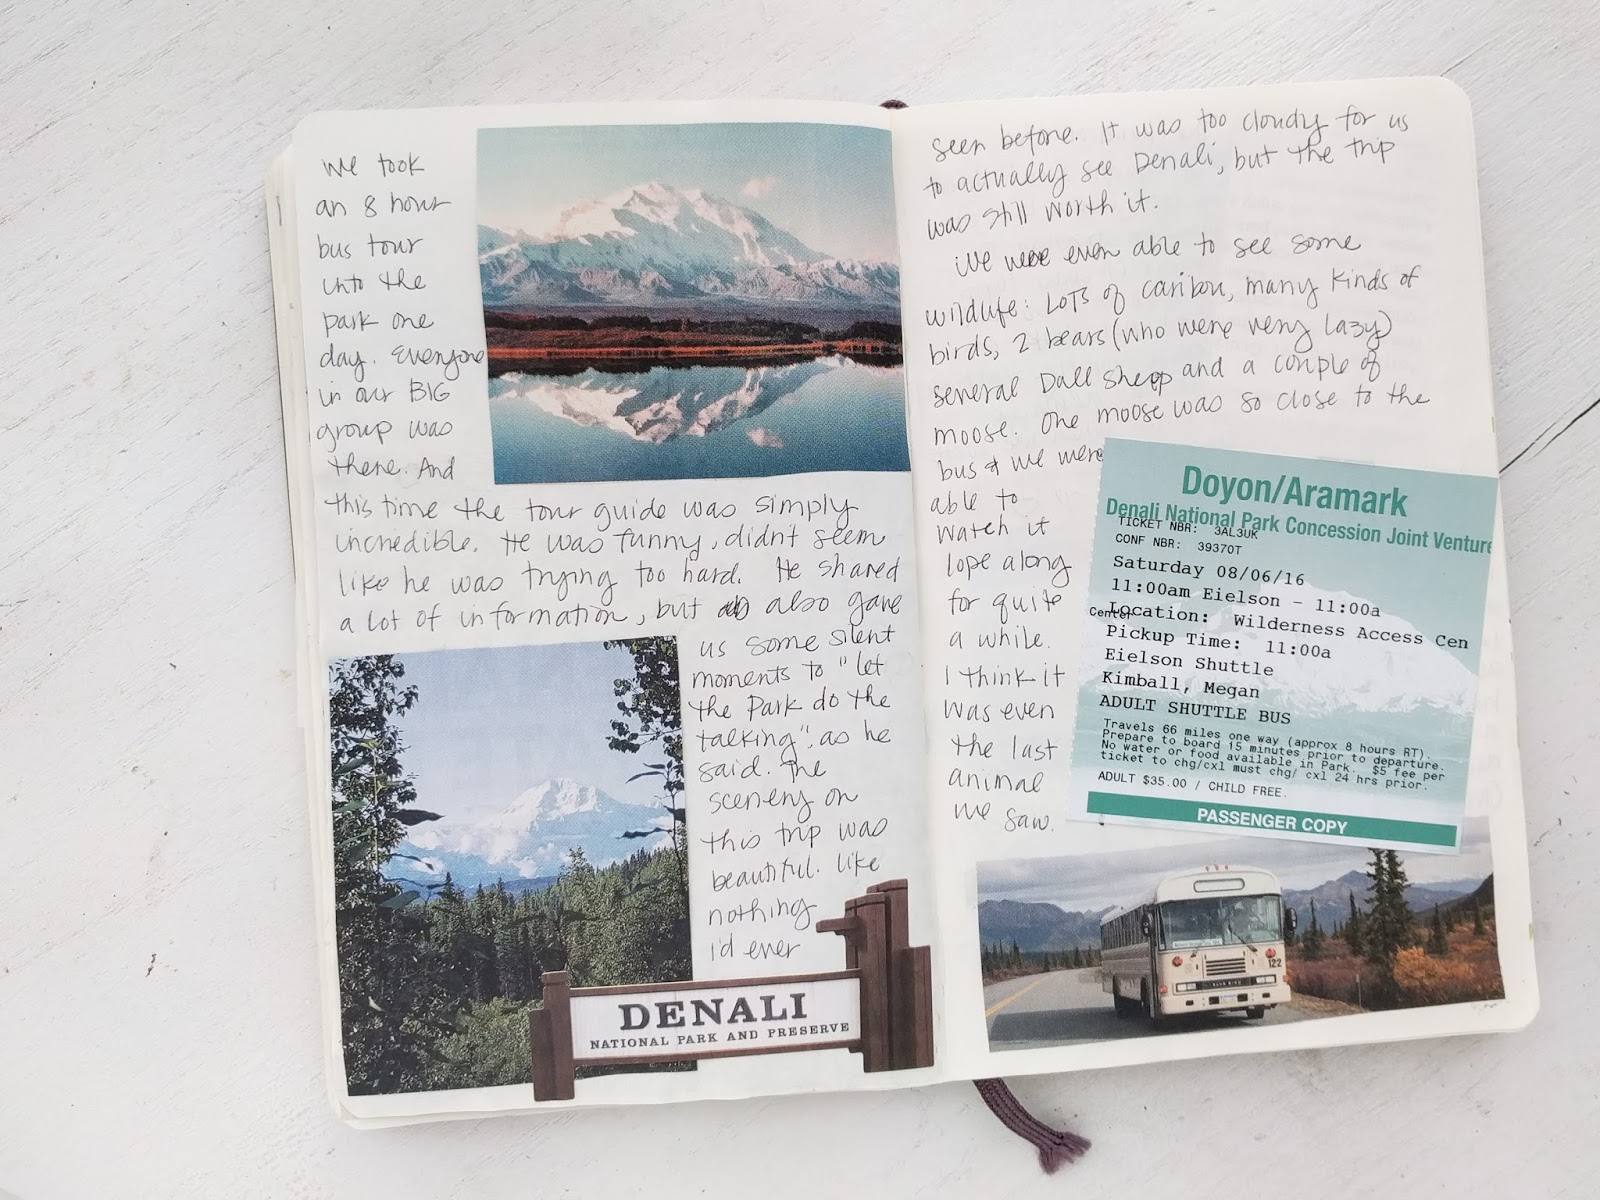 We took
an 8 hour
bus tour
into the
park one
day. Everyone
in our BIG
group was
there. And
this time the tour guide was simply
incredible. He was funny, didn't seem
like he was trying too hard. He shared
a lot of information, but also gave
us some silent
moments to "let
the Park do the
talking", as he
said. The
scenery on
this trip was
beautiful. Like
nothing
I'd ever
DENALI
NATIONAL PARK AND PRESERVE
seen before. It was too cloudy for us
to actually see Denali, but the trip
was still worth it.
We were even able to see some
wildlife: Lots of caribou, many kinds of
birds, 2 bears (who were very lazy)
several Dall sheep and a couple of
moose. One moose was so close to the
bus & we were
able to
watch it
lope along
for quite
a while.
I think it
was even
the last
animal
we saw.
Doyon/Aramark
Denali National Park Concession Joint Venture
TICKET NBR: 3AL3UK
CONF NBR: 39370T
Saturday 08/06/16
11:00am Eielson - 11:00a
Location: Wilderness Access Cen
Center
Pickup Time: 11:00a
Eielson Shuttle
Kimball, Megan
ADULT SHUTTLE BUS
Travels 66 miles one way (approx 8 hours RT).
Prepare to board 15 minutes prior to departure.
No water or food available in Park. $5 fee per
ticket to chg/cxl must chg/ cxl 24 hrs prior.
ADULT $35.00 / CHILD FREE.
PASSENGER COPY
122